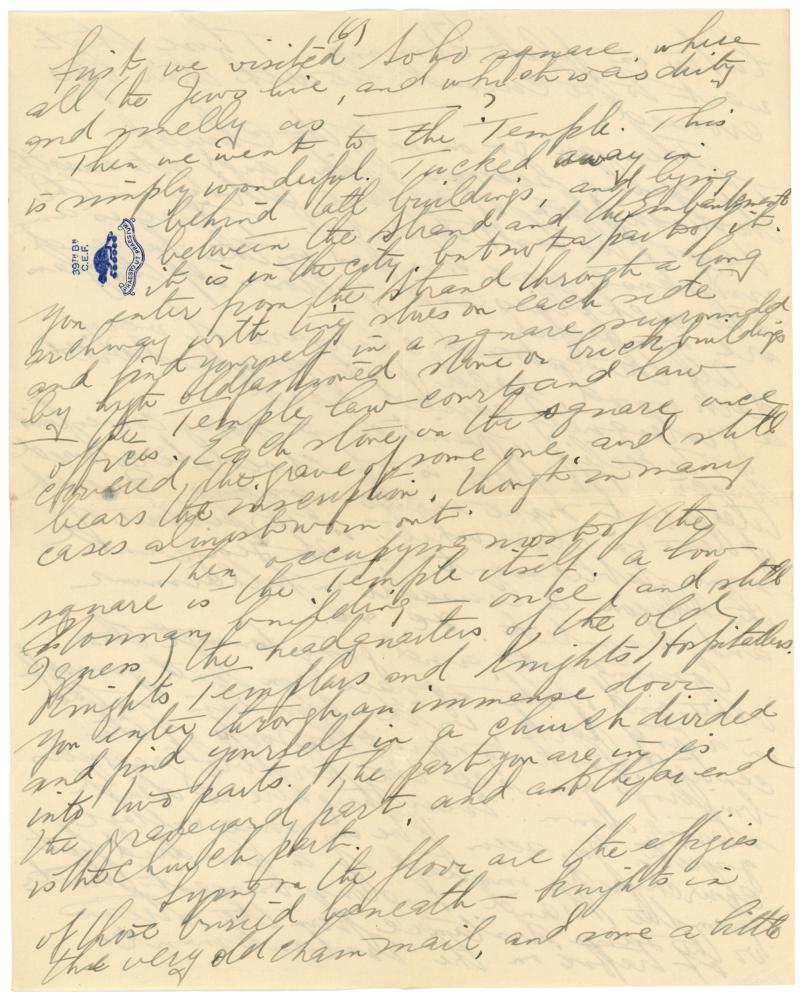 (6)
First we visited Soho square where
all the Jews live, and which is as dirty
and smelly as ———?
Then we went to The Temple. This
is simply wonderful. Tucked away in
behind tall buildings, and lying
between the Strand and the Embankment
it is in the city, but not a part of it.
You enter from the Strand through a long
archway with tiny stores on each side
and find yourself in a square surrounded
by high oldfashioned stone or brick buildings
— the Temple law courts and law
offices. Each stone on the square once
covered the grave of some one, and still
bears the inscription, though in many
cases almost worn out.
Then occupying most of the
square is the Temple itself a low
Norman building — once (and still
I guess) the headquarters of the old
Knights Templars and Knights Hospitallers.
You enter through an immense door
and find yourself in a church divided
into two parts. The part you are in is
the graveyard part and at the far end
is the church part.
Lying on the floor are the effigies
of those buried beneath — Knights in
the very old chain mail, and some a little
39TH BN
C.E.F.